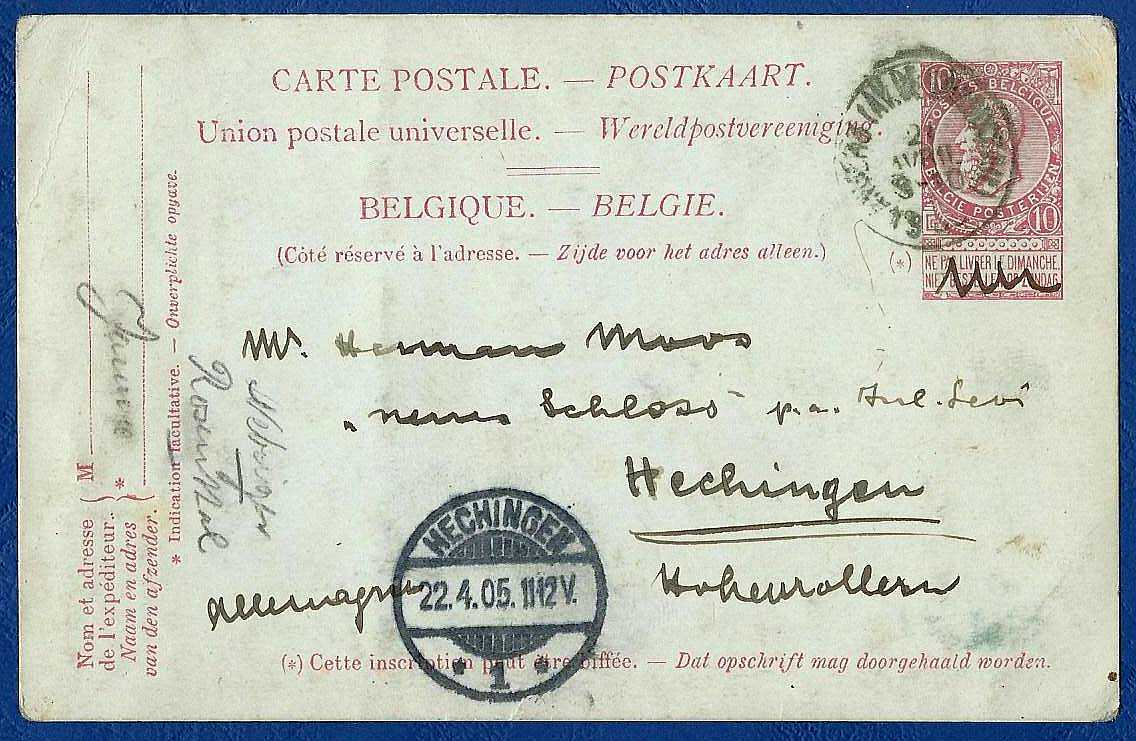 CARTE POSTALE. — POSTKAART.
Union postale universelle. — Wereldpostvereeniging.
BELGIQUE. — BELGIE.
(Côté réservé à l'adresse. — Zijde voor het adres alleen.)
10
POSTES BELGIQUE
BELGIË POSTERIJEN
10
(*) NE PAS LIVRER LE DIMANCHE.
NIET BESTELLEN OP ZONDAG.
Mr. Herman Moos
"neues Schloss" p.a. Jul. Levi
Hechingen
Hohenzollern
Allemagne
HECHINGEN
22.4.05. 11-12V.
* 1 *
(*) Cette inscription peut être biffée. — Dat opschrift mag doorgehaald worden.
Nom et adresse
de l'expéditeur.
Naam en adres
van den afzender.
M
*
* Indication facultative. — Onverplichte opgave.